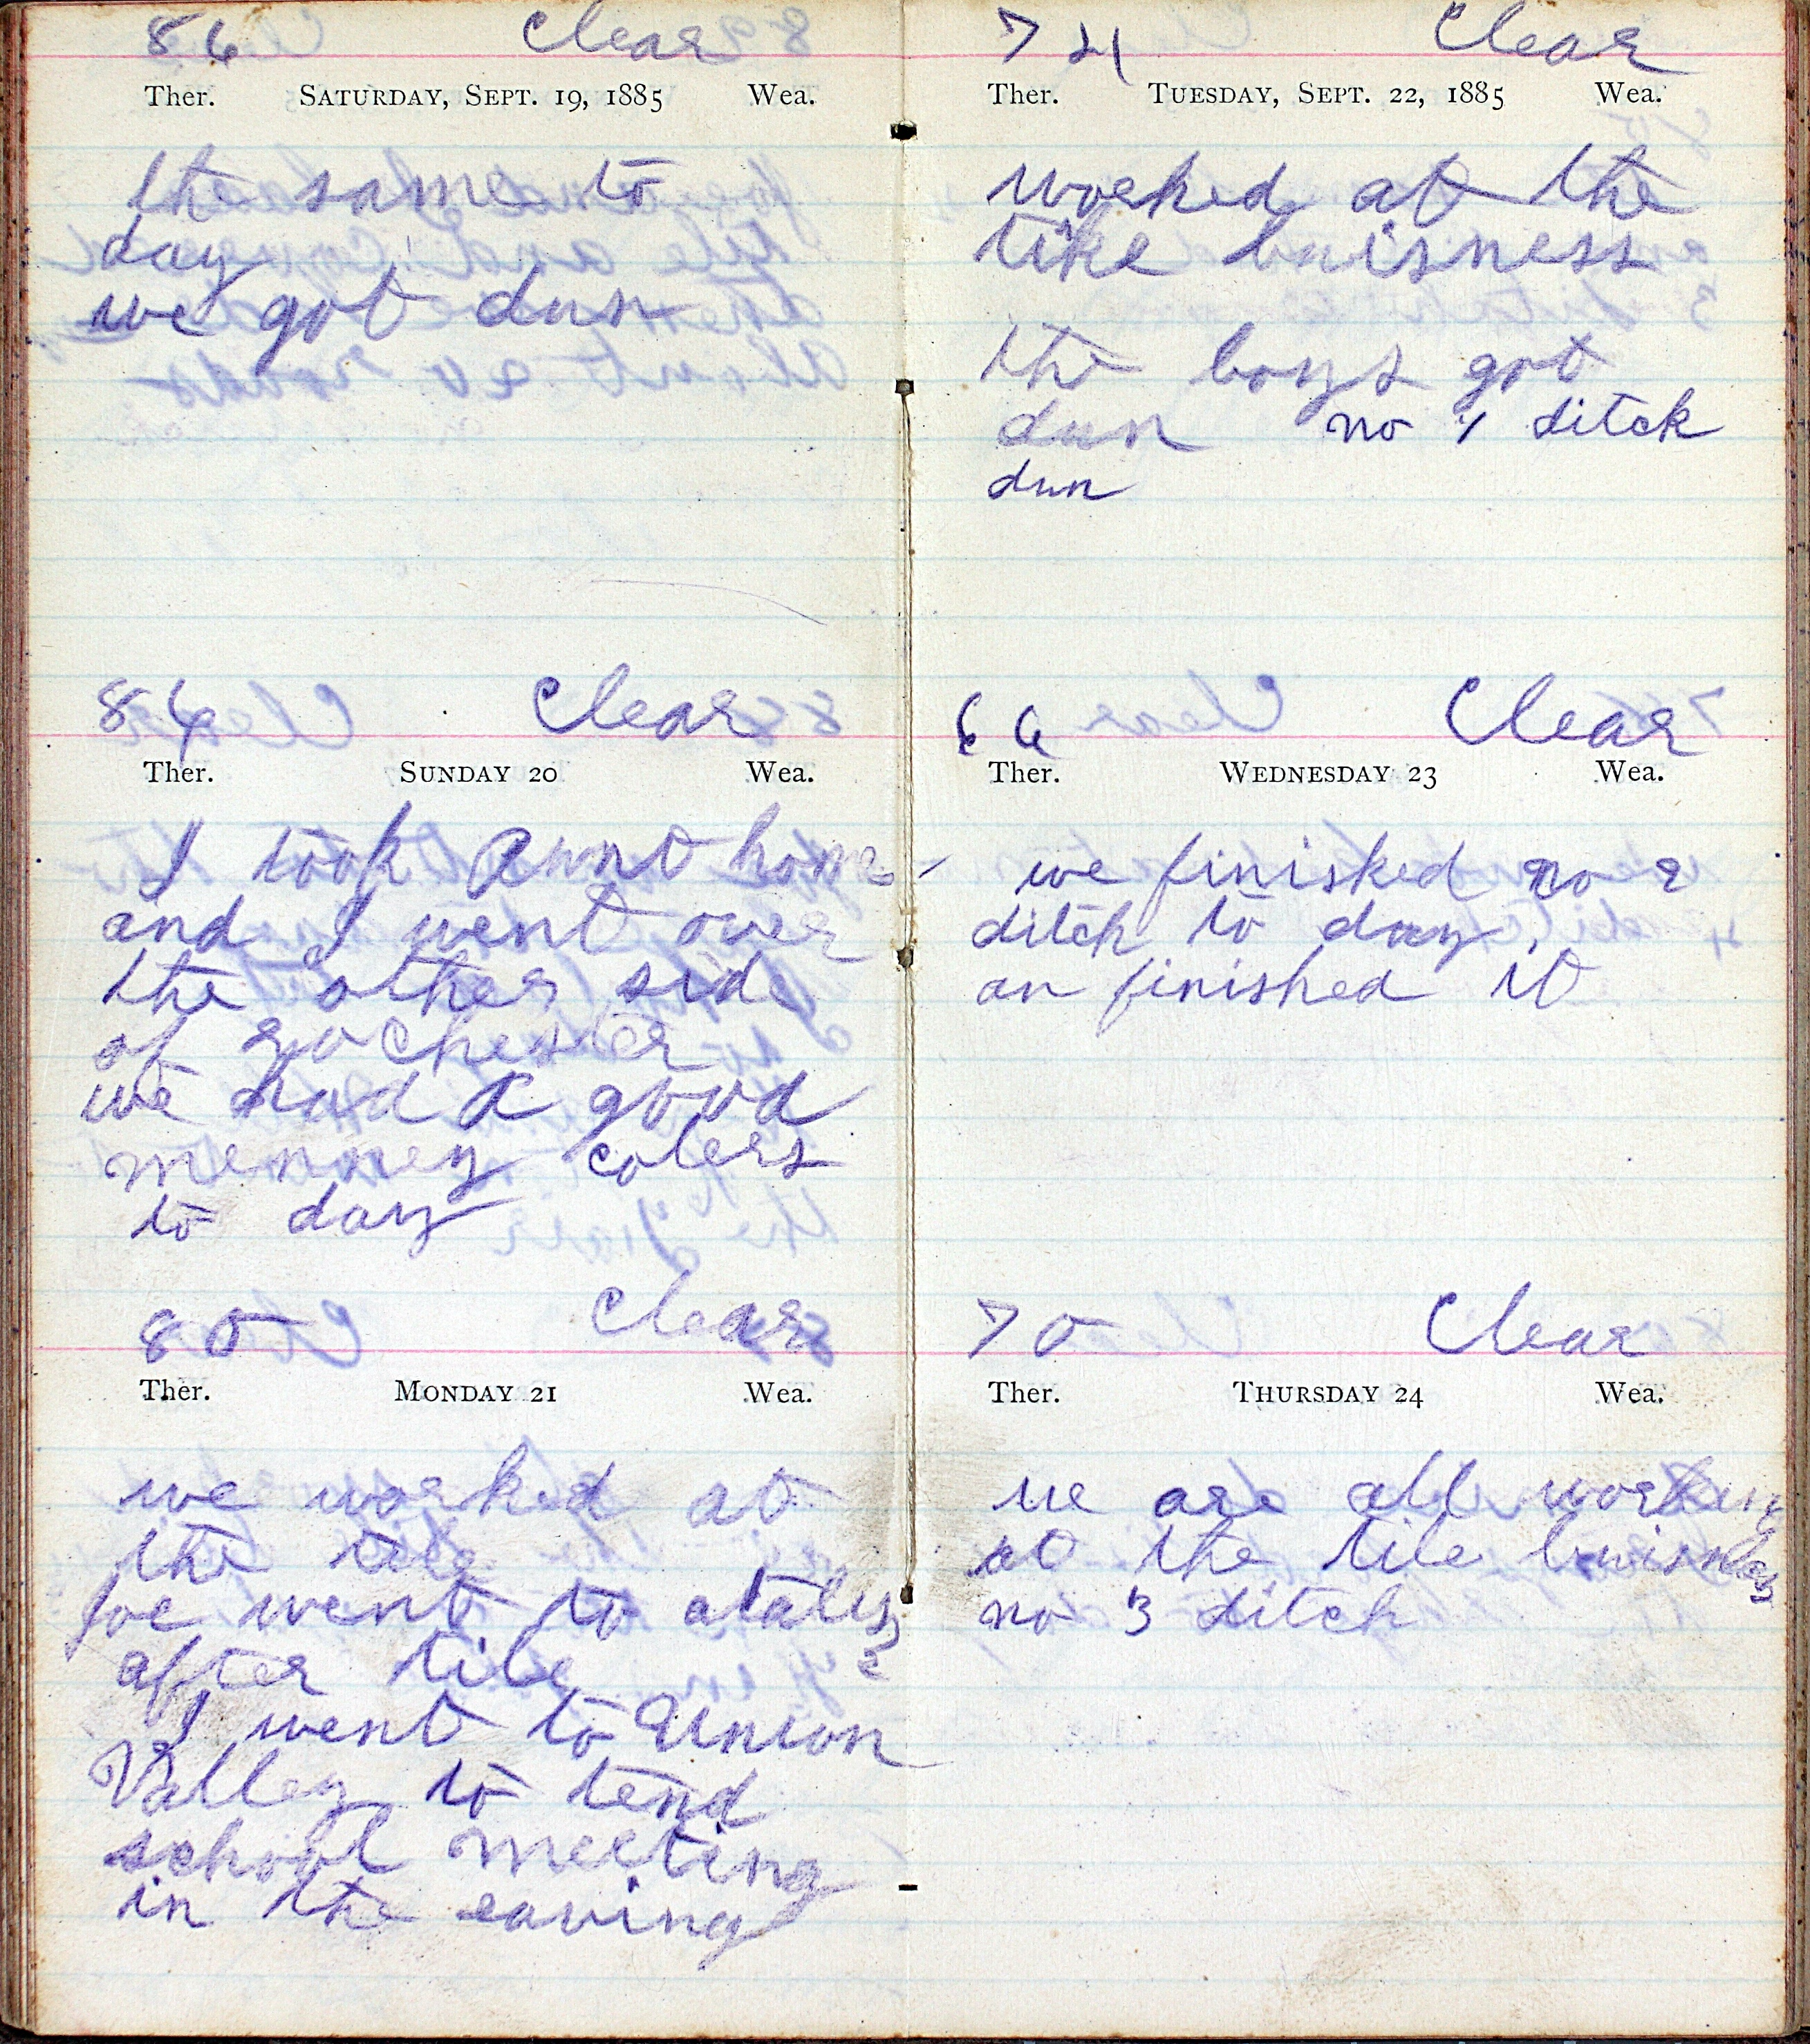 86 Clear
Ther. SATURDAY, SEPT. 19, 1885 Wea.
the same to
day
we got dun
84 Clear
Ther. SUNDAY 20 Wea.
I took Aunt home
and I went over
the other side
of rochester
we had a good
menney colers
to day
80 Clear
Ther. MONDAY 21 Wea.
we worked at
the tile
Joe went to
after tile
I went to Union
Valley to tend
school meeting
in the eaving
74 Clear
Ther. TUESDAY, SEPT. 22, 1885 Wea.
worked at the
like buisness
the boys got
dun no 1 ditch
dun
66 Clear
Ther. WEDNESDAY 23 Wea.
we finished no 2
ditch to day
an finished it
70 Clear
Ther. THURSDAY 24 Wea.
we are all working
at the tile buisness
no 3 ditch